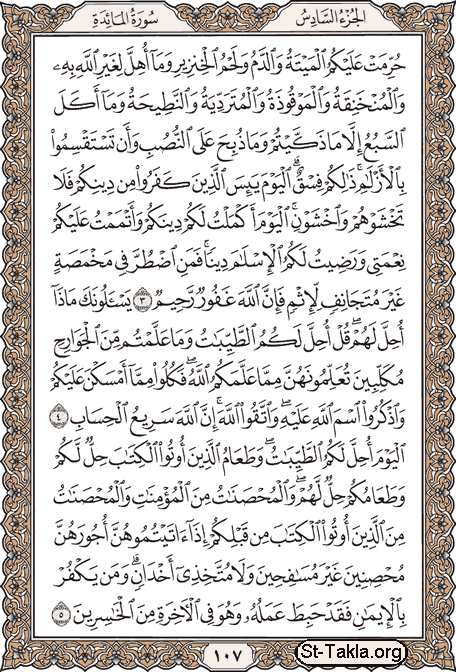 الجزء السادس سورة المائدة
حُرِّمَتْ عَلَيْكُمُ ٱلْمَيْتَةُ وَٱلدَّمُ وَلَحْمُ ٱلْخِنزِيرِ وَمَآ أُهِلَّ لِغَيْرِ ٱللَّهِ بِهِۦ
وَٱلْمُنْخَنِقَةُ وَٱلْمَوْقُوذَةُ وَٱلْمُتَرَدِّيَةُ وَٱلنَّطِيحَةُ وَمَآ أَكَلَ
ٱلسَّبُعُ إِلَّا مَا ذَكَّيْتُمْ وَمَا ذُبِحَ عَلَى ٱلنُّصُبِ وَأَن تَسْتَقْسِمُوا۟
بِٱلْأَزْلَٰمِ ۚ ذَٰلِكُمْ فِسْقٌ ۗ ٱلْيَوْمَ يَئِسَ ٱلَّذِينَ كَفَرُوا۟ مِن دِينِكُمْ فَلَا
تَخْشَوْهُمْ وَٱخْشَوْنِ ۚ ٱلْيَوْمَ أَكْمَلْتُ لَكُمْ دِينَكُمْ وَأَتْمَمْتُ عَلَيْكُمْ
نِعْمَتِى وَرَضِيتُ لَكُمُ ٱلْإِسْلَٰمَ دِينًا ۚ فَمَنِ ٱضْطُرَّ فِى مَخْمَصَةٍ
غَيْرَ مُتَجَانِفٍ لِّإِثْمٍ ۙ فَإِنَّ ٱللَّهَ غَفُورٌ رَّحِيمٌ ٣ يَسْـَٔلُونَكَ مَاذَآ
أُحِلَّ لَهُمْ ۖ قُلْ أُحِلَّ لَكُمُ ٱلطَّيِّبَٰتُ ۙ وَمَا عَلَّمْتُم مِّنَ ٱلْجَوَارِحِ
مُكَلِّبِينَ تُعَلِّمُونَهُنَّ مِمَّا عَلَّمَكُمُ ٱللَّهُ ۖ فَكُلُوا۟ مِمَّآ أَمْسَكْنَ عَلَيْكُمْ
وَٱذْكُرُوا۟ ٱسْمَ ٱللَّهِ عَلَيْهِ ۖ وَٱتَّقُوا۟ ٱللَّهَ ۚ إِنَّ ٱللَّهَ سَرِيعُ ٱلْحِسَابِ ٤
ٱلْيَوْمَ أُحِلَّ لَكُمُ ٱلطَّيِّبَٰتُ ۖ وَطَعَامُ ٱلَّذِينَ أُوتُوا۟ ٱلْكِتَٰبَ حِلٌّ لَّكُمْ
وَطَعَامُكُمْ حِلٌّ لَّهُمْ ۖ وَٱلْمُحْصَنَٰتُ مِنَ ٱلْمُؤْمِنَٰتِ وَٱلْمُحْصَنَٰتُ
مِنَ ٱلَّذِينَ أُوتُوا۟ ٱلْكِتَٰبَ مِن قَبْلِكُمْ إِذَآ ءَاتَيْتُمُوهُنَّ أُجُورَهُنَّ
مُحْصِنِينَ غَيْرَ مُسَٰفِحِينَ وَلَا مُتَّخِذِىٓ أَخْدَانٍ ۗ وَمَن يَكْفُرْ
بِٱلْإِيمَٰنِ فَقَدْ حَبِطَ عَمَلُهُۥ وَهُوَ فِى ٱلْءَاخِرَةِ مِنَ ٱلْخَٰسِرِينَ ٥
١٠٧
St-Takla.org